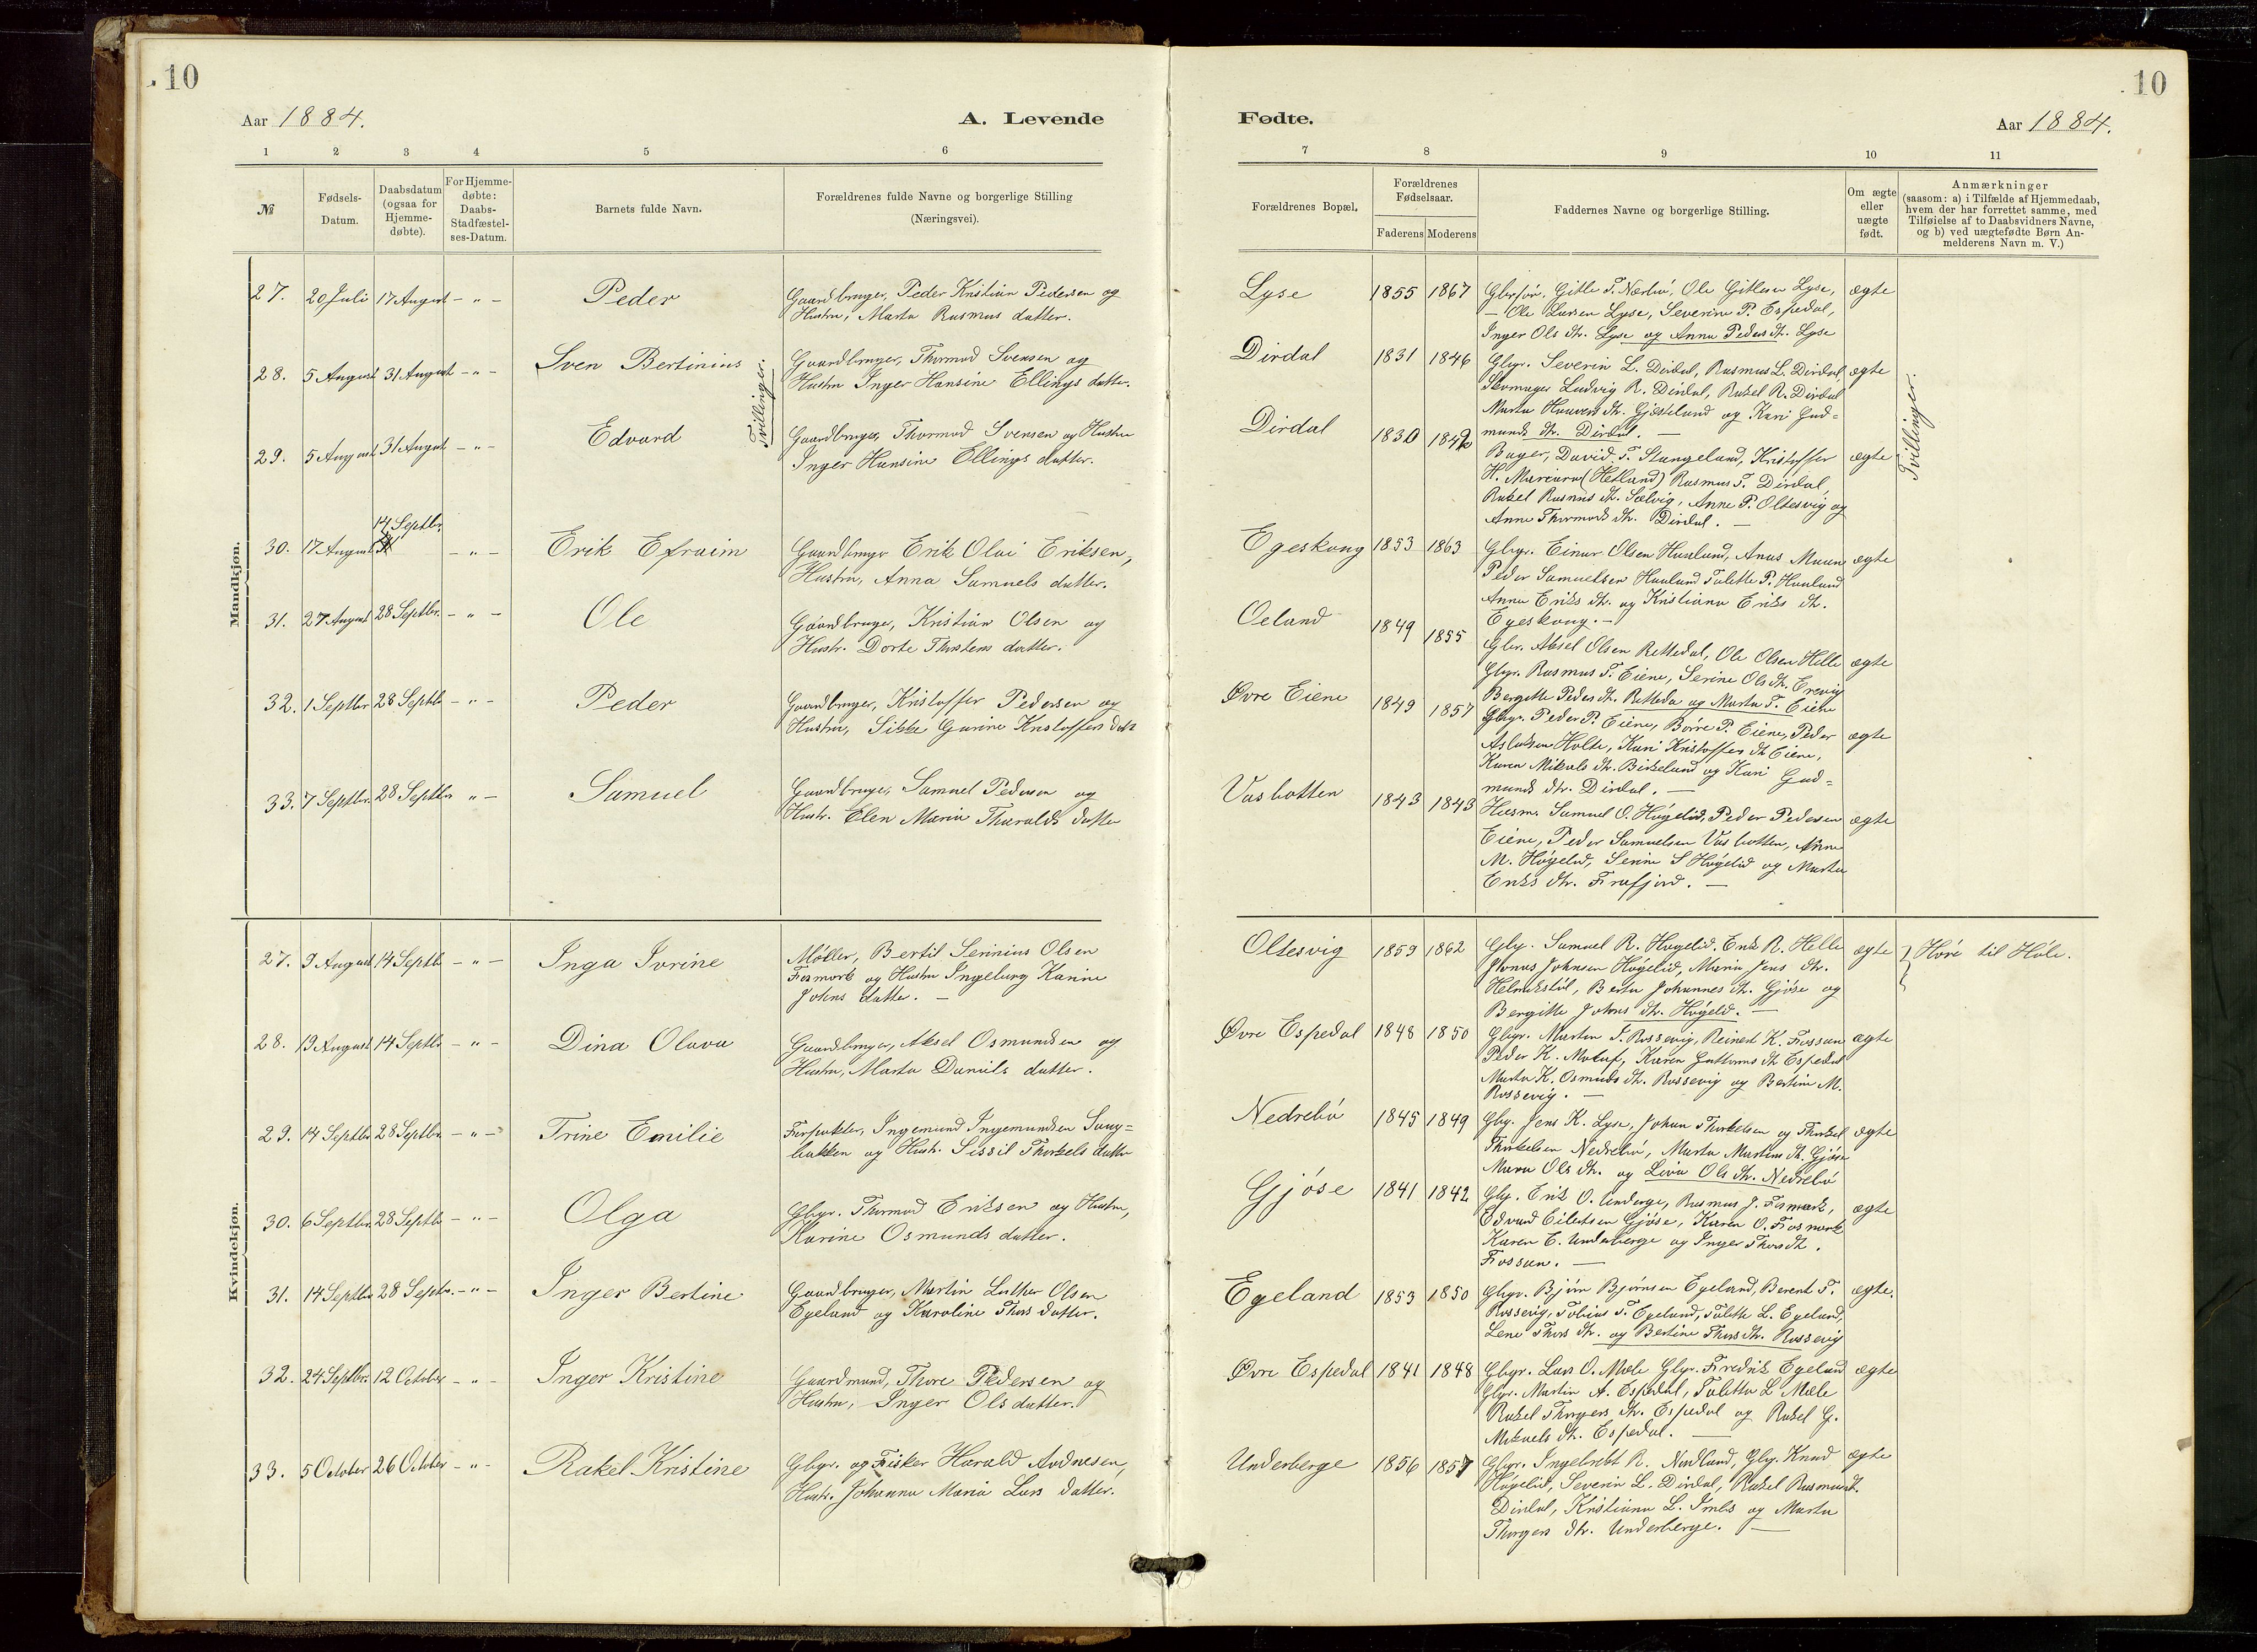 10
Aar 1884.
A. Levende
1 2 3 4 5 6
№
Fødsels-
Datum.
Daabsdatum
(ogsaa for
Hjemme-
døbte).
For Hjemme-
døbte:
Daabs-
Stadfæstel-
ses-Datum.
Barnets fulde Navn.
Forældrenes fulde Navne og borgerlige Stilling
(Næringsvei).
Mandkjøn.
27. 20 Juli 17 August - " - Peder Gaardbruger, Peder Kristian Pedersen og
Hustru, Marta Rasmus datter.
28. 5 August 31 August - " - Sven Bertinius Gaardbruger, Thormod Svensen og
Hustru Inger Hansine Ellings datter.
Tvillinger.
29. 5 August 31 August - " - Edvard Gaardbruger, Thormod Svensen og Hustru
Inger Hansine Ellings datter.
14 Septbr.
30. 17 August - " - Erik Efraim Gaardbruger Erik Olai Eriksen,
Hustru, Anna Samuels datter.
31. 27 August 28 Septbr. - " - Ole Gaardbruger, Kristian Olsen og
Hustr. Dorte Thorstens datter.
32. 1 Septbr 28 Septb - " - Peder Gaardbruger, Kristoffer Pedersen og
Hustru, Sikke Gurine Kristoffers datr
33. 7 Septbr. 28 Septbr " - Samuel Gaardbruger, Samuel Pedersen og
Hustr. Elen Maria Tharalds datter
Kvindekjøn.
27. 9 August 14 Septb - " - Inga Ivrine Møller, Bertil Serinius Olsen
Fosmork og Hustru Ingeborg Karine
Johns datte. -
28. 13 August 14 Septbr - " - Dina Olava Gaardbruger, Aksel Osmundsen og
Hustru, Marta Daniels datter.
29. 14 Septbr 28 Septbr. - " - Trine Emilie Forpakter, Ingemund Ingemundsen Saug=
bakken og Hustr. Sissil Thorkels datter
30. 6 Septbr. 28 Septb - " - Olga Gbgr. Thormod Eriksen og Hustru,
Karine Osmunds datter.
31. 14 Septbr 28 Septr. - " - Inger Bertine Gaardbruger, Martin Luther Olsen
Egeland og Karoline Thors datter.
32. 24 Septbr. 12 October - " - Inger Kristine Gaardmand, Thore Pedersen og
Hustru, Inger Ols datter.
33. 5 October 26 October - " - Rakel Kristine Gbgr. og Fisker Harald Avdnesen,
Hustr. Johanna Maria Lars datter.
10
Fødte.
Aar 1884.
7 8 9 10 11
Forældrenes Bopæl.
Forældrenes
Fødselsaar.
Faderens Moderens
Faddernes Navne og borgerlige Stilling.
Om ægte
eller
uægte
født.
Anmærkninger
(saasom: a) i Tilfælde af Hjemmedaab,
hvem der har forrettet samme, med
Tilføielse af to Daabsvidners Navne,
og b) ved uægtefødte Børn An-
melderens Navn m. V.)
Lyse 1855 1867 Gitle T. Nærbø, Ole Gitlesen Lyse, ægte
- Ole Larsen Lyse, Severine P. Espedal,
Inger Ols dtr. Lyse og Anna Peders dt. Lyse
Dirdal 1831 1846 Gbgr. Severin L. Dirdal, Rasmus L. Dirdal, ægte
Skomager Ludvig R. Dirdal, Rakel R. Dirdal
Marta dt. Gjesteland og Kari Gud=
munds dtr. Dirdal. -
Tvillinger.
Dirdal 1830 Bager, David T. Stangeland, Kristoffer ægte
H. (Hetland) Rasmus T. Dirdal,
Rakel Rasmus dt. Selvig, Anne P. Oltesvig og
Anne Thormods dtr. Dirdal. -
Egeskoug 1853 1863 Gbgr. Einar Olsen Haaland, ægte
Peder Samuelsen Haaland Talette P. Haaland
Anna Eriks dt. og Kristiana Eriks dt.
Egeskoug. -
Oeland 1849 1855 Gbr. Aksel Olsen Rettedal, Ole Olsen Helle ægte
Gbgr. Rasmus T. Eiene, Serine Ols dt. Erevig
Bergitte Peders dt. Rettedal og Marta T. Eiene
Øvre Eiene 1849 1857 Gbgr. Peder P. Eiene, Børre P. Eiene, Peder ægte
Aslaksen Holte, Kari Kristoffers dt Eiene,
Karen Mikals dt. Birkeland og Kari Gud=
munds dtr. Dirdal. -
Vasbotten 1843 1843 Husm. Samuel O. Høgelid, Peder Pedersen ægte
Eiene, Peder Samuelsen Vasbotten, Anne
M. Høgelid, Serine S Høgelid og Marta
Eriks dtr. Frafjord. -
Oltesvig 1859 1862 Gbg. Samuel R. Høgelid, Erik R. Helle ægte Høre til Høle.
Jonas Johnsen Høgelid, Maria Jens dt.
Helmikstøl, Berta Johannes dt. Gjøse og
Bergitte Johns dtr. Høgelid. -
Øvre Espedal 1848 1850 Gbgr. Martin T. Rossevig, Reinert K. Fossan ægte
Peder K. Molaug, Karen Guttorms dt Espedal
Marta K. Osmunds dt. Rossevig og Bertine M.
Rossevig. -
Nedrebø 1845 1849 Gbg. Jens K. Lyse, Johan Thorkelsen og Thorkel ægte
Thorkelsen Nedrebø, Marta Martins dt. Gjøse
Maren Ols dt. og Liva Ols dtr. Nedrebø
Gjøse 1841 1842 Gbg. Erik O. Underge, Rasmus J. Fosmark, ægte
Edvard Eilertsen Gjøse, Karen O. Fosmark
Karen E. Underberge og Inger Thors dt.
Fossan. -
Egeland 1853 1850 Gbgr. Bjørn Bjørnsen Egeland, Berent T. ægte.
Rossevig, Tobias T. Egeland, Talette L. Egeland,
Lene Thors dt. og Bertine Thors dt. Rossevig
Øvre Espedal 1841 1848 Gbgr. Lars O. Mæle Gbgr. Fredrik Egeland ægte
Gbgr. Martin A. Espedal, Taletta L Mæle
Rakel Thorgers dt. Espedal og Rakel G.
Mikaels dt. Espedal. -
Underberge 1856 1857 Gbgr. Ingebret R. Nedland, Gbg. Knud ægte
Høgelid, Severin L. Dirdal, Rakel Rasmusdt.
Dirdal, Kristiana L. Imbs og Marta
Thorgers dtr. Underberge. -